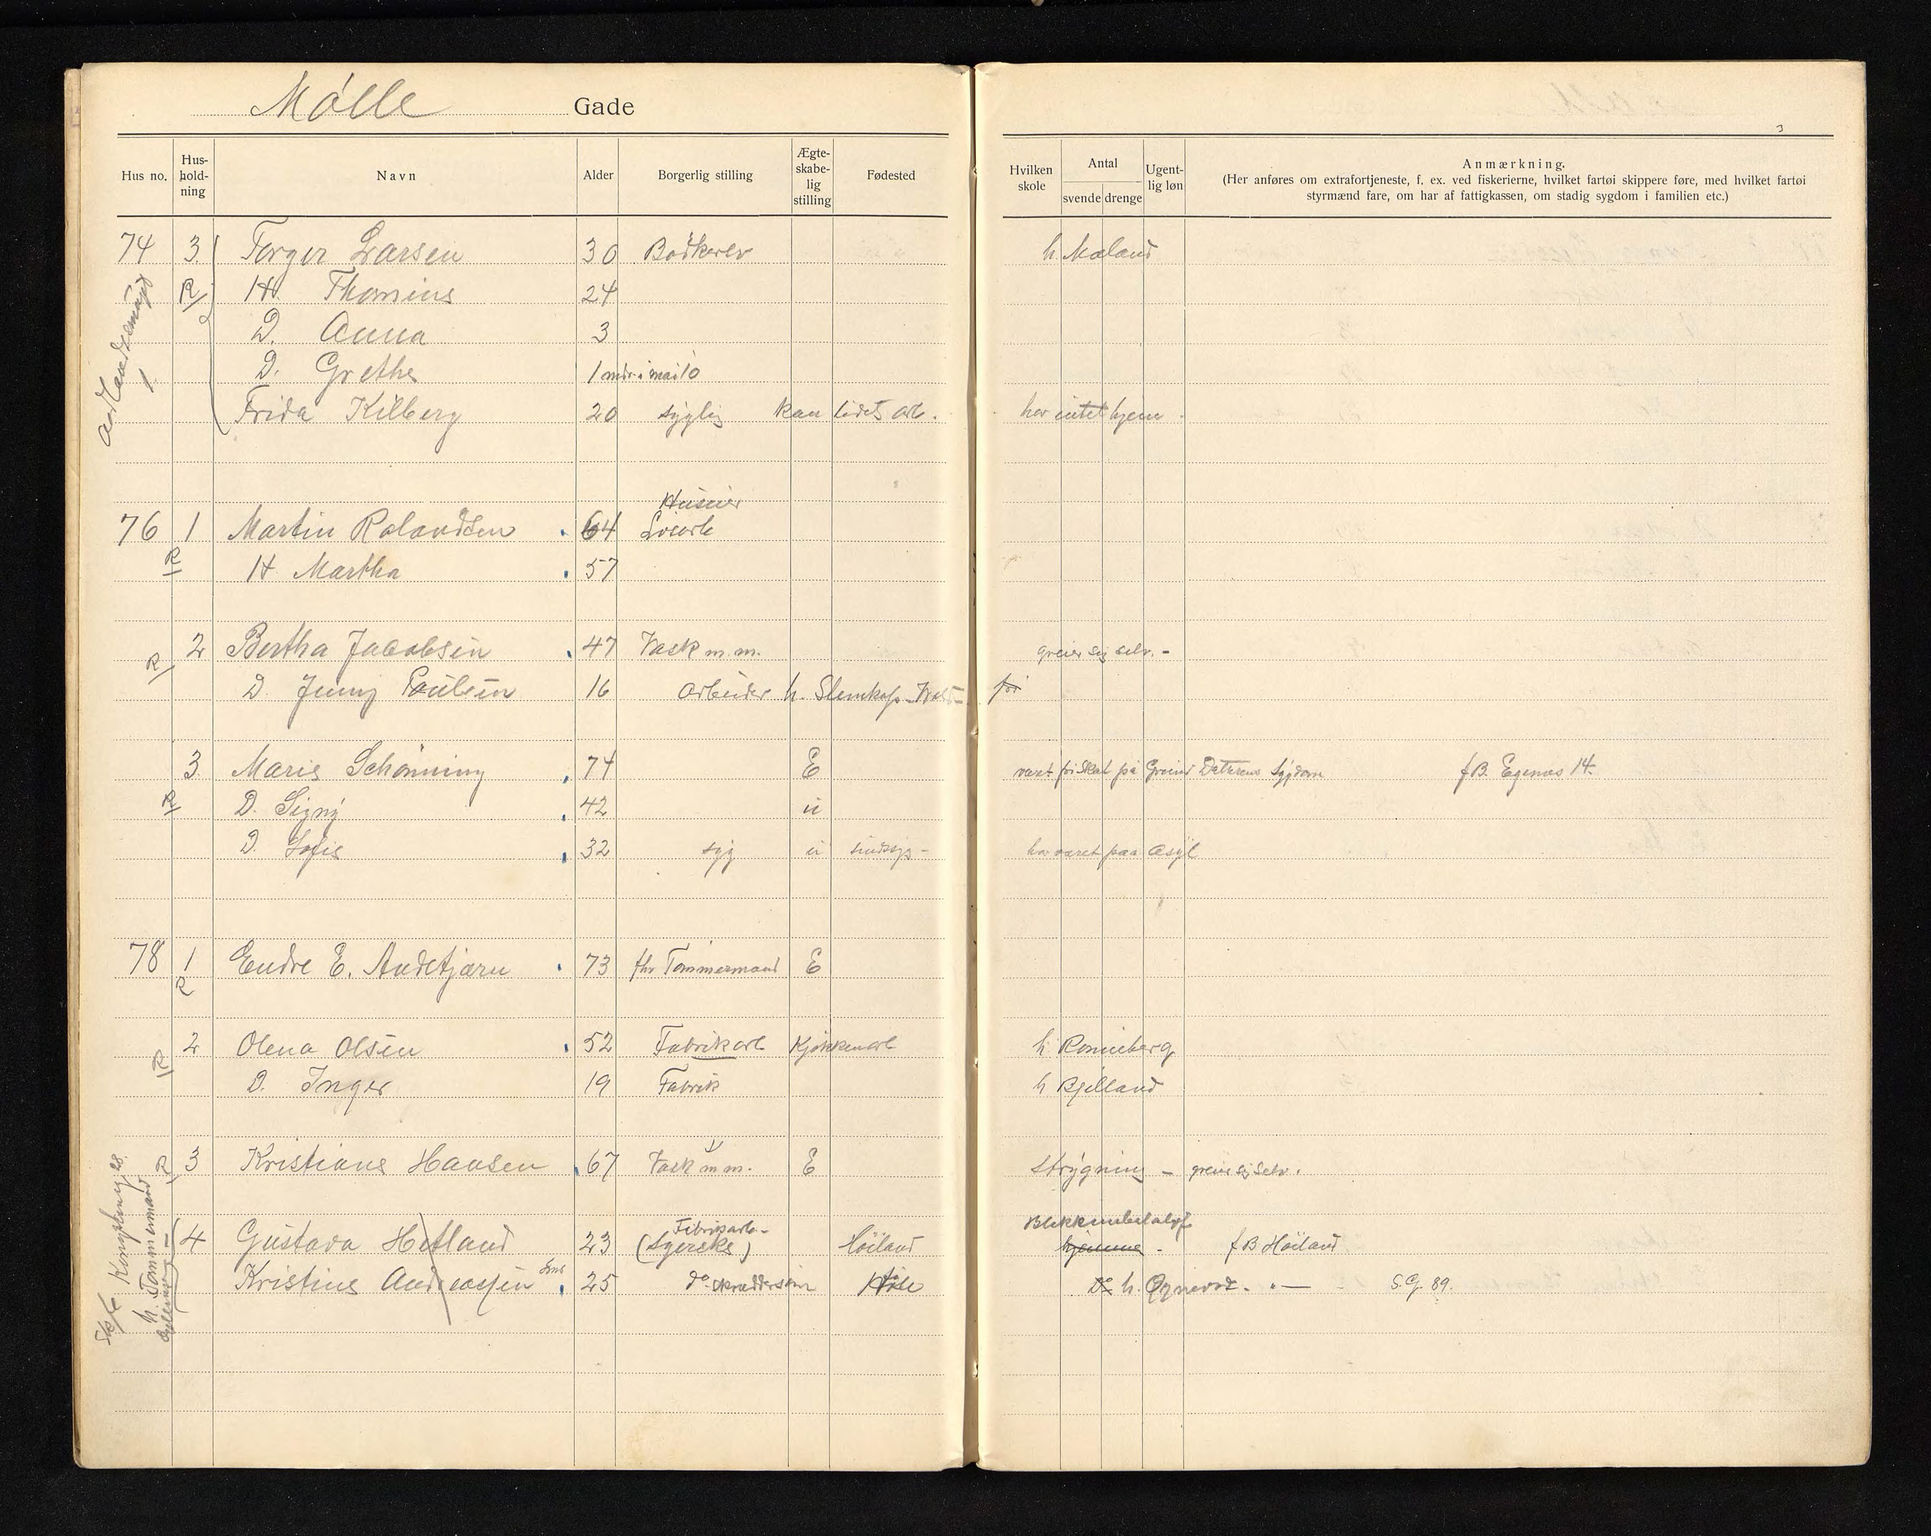 Mølle Gade
3
Hus no. Hus-hold-ning Navn Alder Borgerlig stilling Ægte-skabe-lig stilling Fødested Hvilken skole Antal svende drenge Ugent-lig løn Anmærkning.
(Her anføres om extrafortjeneste, f. ex. ved fiskerierne, hvilket fartøi skippere føre, med hvilket fartøi
styrmænd fare, om har af fattigkassen, om stadig sygdom i familien etc.)
74 3 Torger Larsen 30 Bødkerev h. Maland
R H. 24
D. Anna 3
D. Grethe 1 mdr. i mai 10
Frida Kilberg 20 syglig kan lidet arb. har intet hjem.
1
76 1 Martin Rolandsen 64 Løsarb
R H Martha 57
2 Bertha Jacobsen 47 Vask m.m. greier sig selv. -
R D. Jenny Paulsen 16 arbeider h.
3 Marie Schønning 74 E været fri Skat på Grund Daterens Sygdom f B. Egenæs 14.
R D. Signy 42 u
D. Sofie 32 syg u sindssyg - har været paa Asyl
78 1 Endre E. 73 fhv Tømmermand E
R
2 Olena Olsen 52 Fabrikarb Kjøkkenarb h Ronneberg
R D. Inger 19 Fabrik h Bjelland
3 Kristiane Hansen 67 Vask m m. E Strygning - greier sig selv.
R
Fabrikarb-
4 Gustava Hetland 23 (Syerske) Høiland hjemme - f B Høiland
Kristine Andreassen 25 do h. Ognevod. " — S.G. 89.
h. Tømmermand